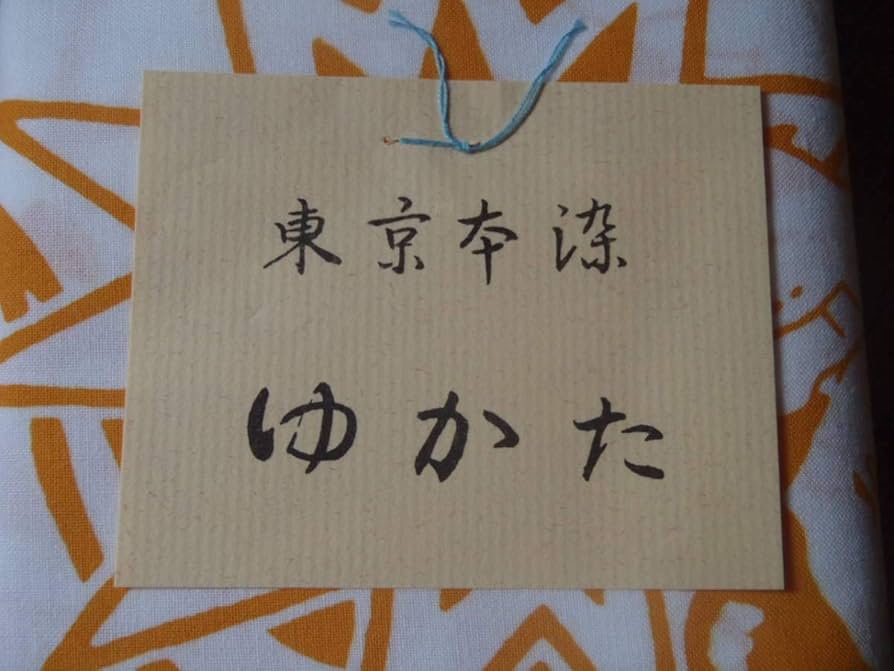 東京本染
ゆかた